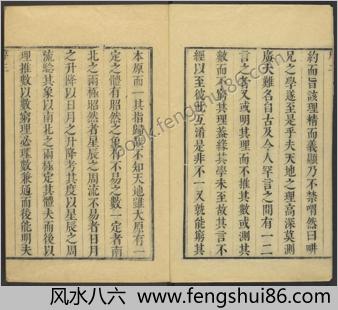 約而旨該理精而義顯乃不禁喟然曰畊
兄之學遂至是乎夫天地之理高深莫測
廣大難名自古及今人罕言之間有一二
言之者又或明其理而不推其數或測其
數而不窮其理益緣其學未至故其言不
經以至彼此互淆是非不一又孰能窮其
本原而一其指歸夫不知天地雖大原有一
定之體有昭然之象有不易之數一定者南
北之兩極昭然者星辰之周流不易者日月
之升降以日月之升降考其度以星辰之周
流驗其象以南北之兩極定其體夫而後以
理推數以數窮理必理數兼通而後能明夫
序二
www.fengshui86.com
风水八六-www.fengshui86.com